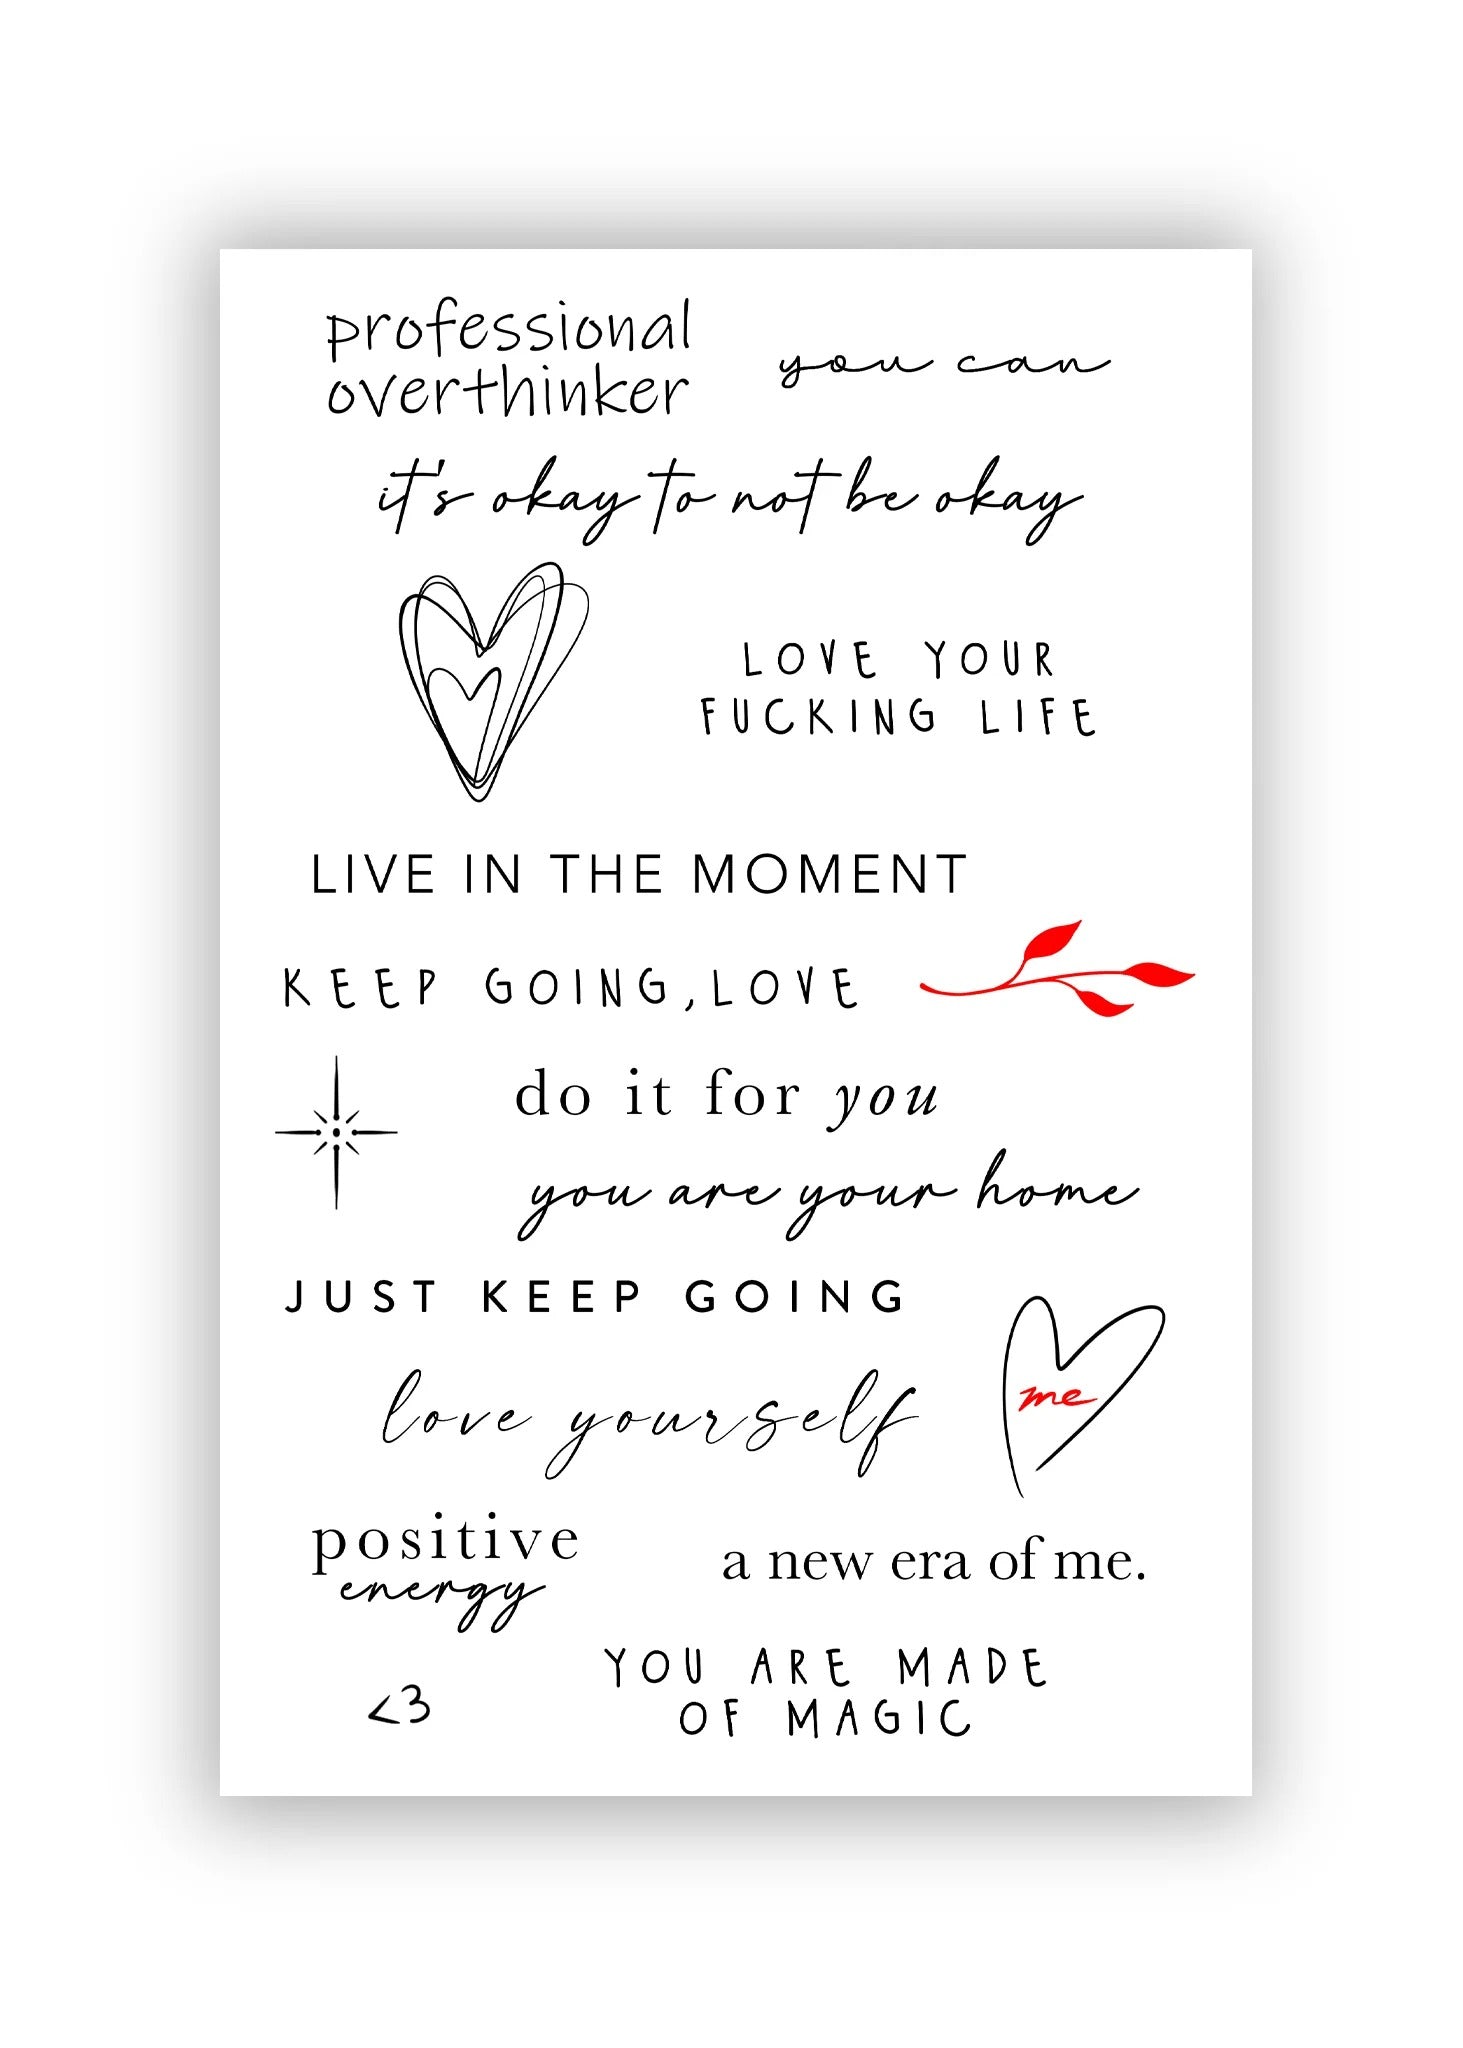 professional
overthinker
you can
it's okay to not be okay
LOVE YOUR
FUCKING LIFE
LIVE IN THE MOMENT
KEEP GOING,LOVE
do it for you
you are your home
JUST KEEP GOING
love yourself
me
positive
energy
a new era of me.
YOU ARE MADE
OF MAGIC
<3